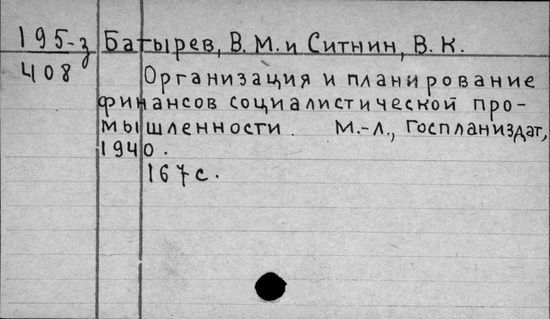 195-з Батырев, В. М. и Ситнин, В. К.
408 Организация и планирование
финансов социалистической про-
мышленности. М.-Л., Госпланиздат,
1940.
167 с.